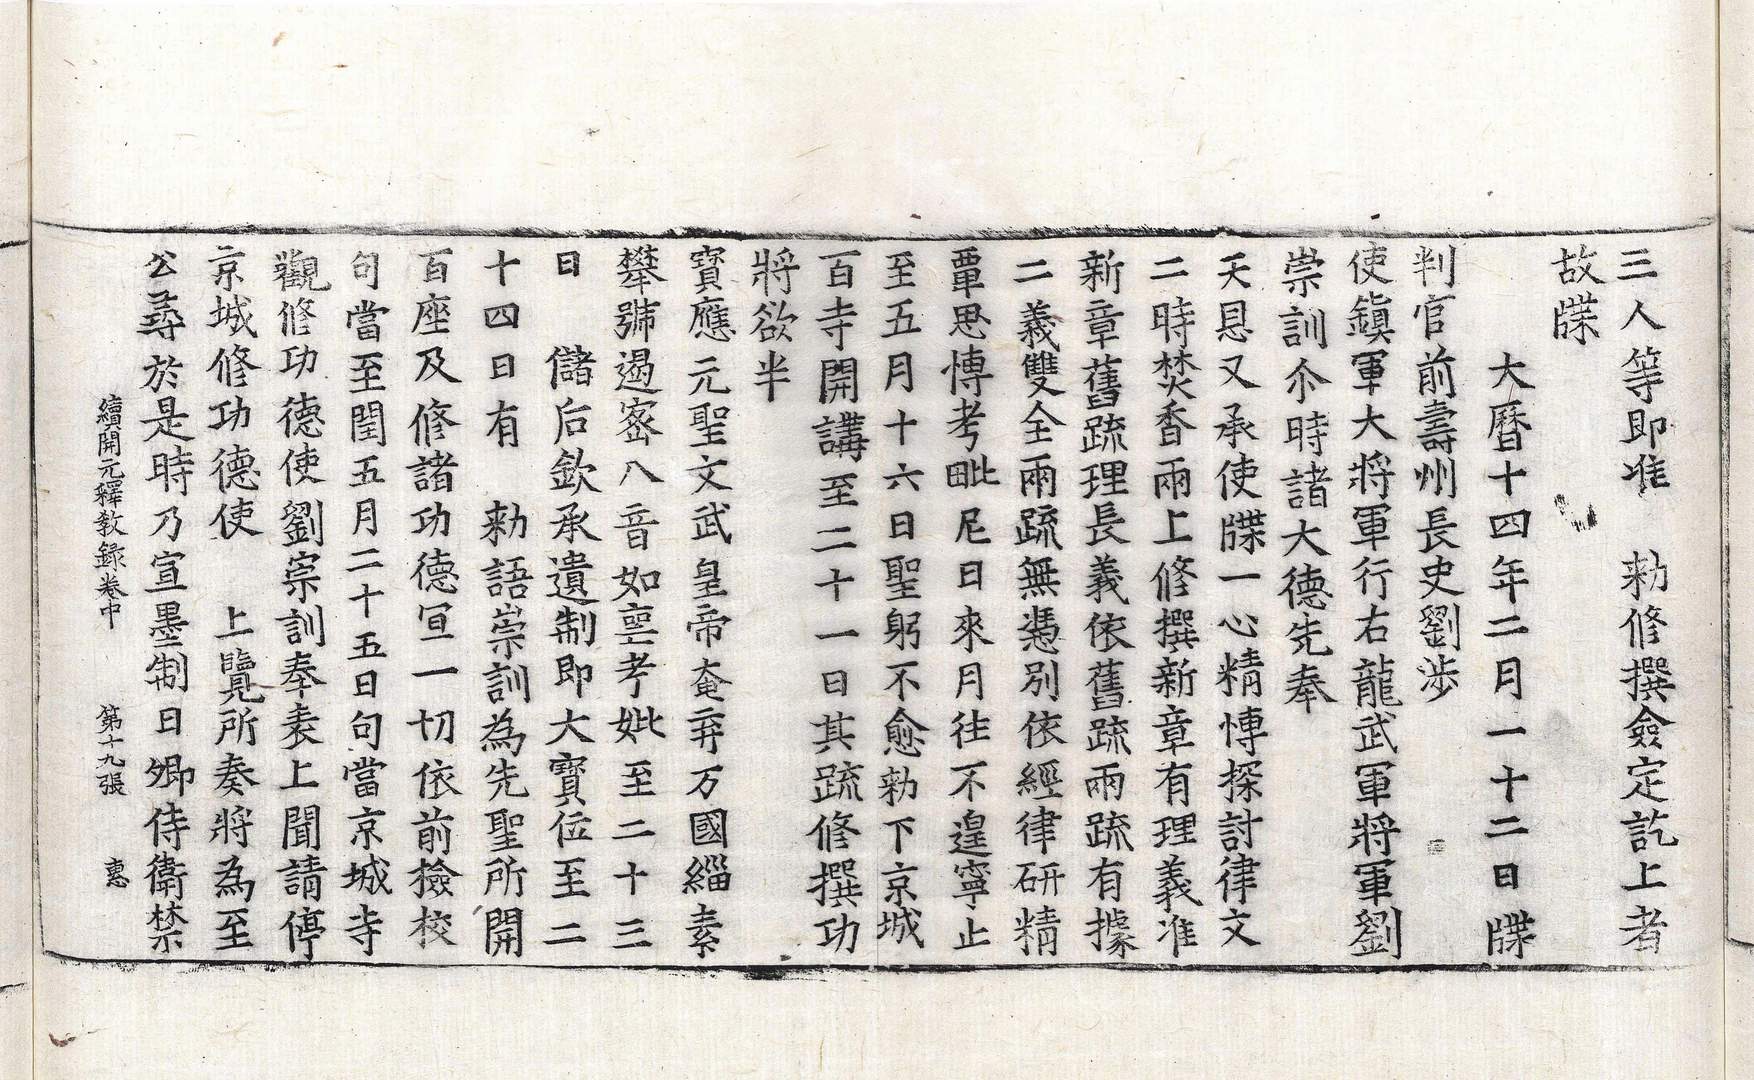 三人等即准　勑修撰僉定訖上者
故牒
大曆十四年二月一十二日牒
判官前壽州長史劉渉
使鎮軍大將軍行右龍武軍將軍劉
崇訓尒時諸大德先奉
天恩又承使牒一心精愽探討律文
二時焚香兩上修撰新章有理義准
新章舊疏理長義依舊疏兩疏有據
二義雙全兩疏無憑別依經律研精
覃思愽考毗尼日來月往不遑寧止
至五月十六日聖躬不愈勑下京城
百寺開講至二十一日其疏修撰功
將欲半
寶應元聖文武皇帝奄弃万國緇素
攀號遏密八音如喪考妣至二十三
日　儲后欽承遺制即大寶位至二
十四日有　勑語崇訓為先聖所開
百座及修諸功德宣一切依前撿校
句當至閏五月二十五日句當京城寺
觀修功德使劉崇訓奉表上聞請停
京城修功德使　上覽所奏將為至
公尋於是時乃宣墨制日卿侍衛禁
續開元釋教録卷中　第十九張　惠